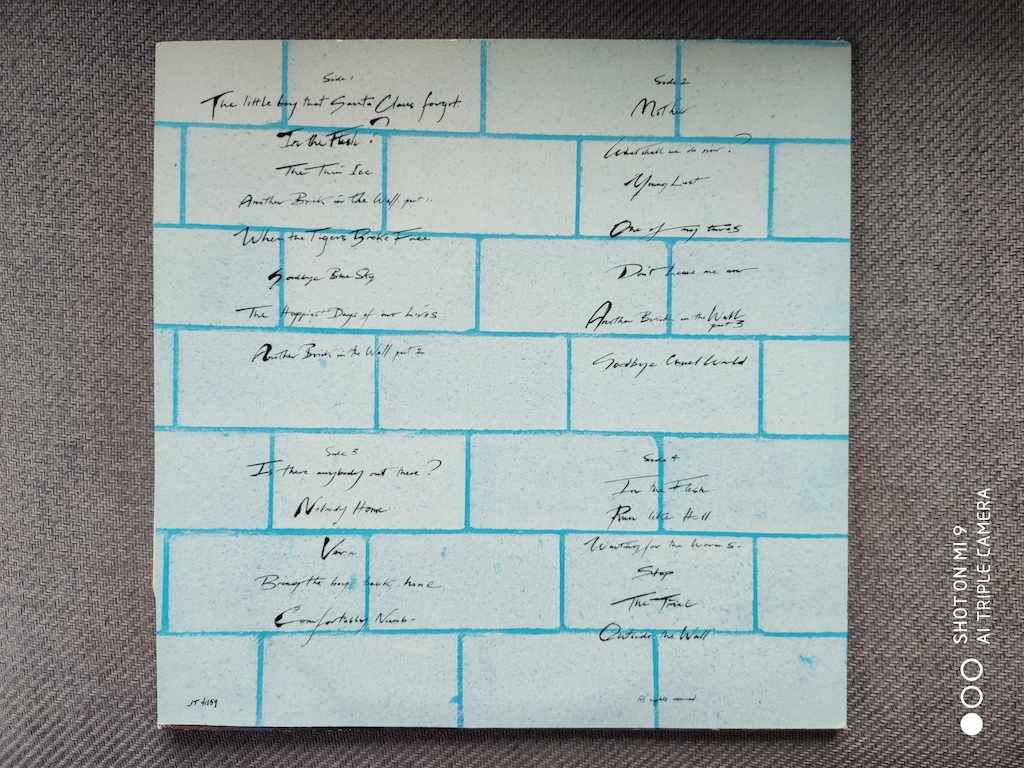 Side 1
The little boy that Santa Claus forgot.
In the Flesh?
The Thin Ice
Another Brick in the Wall part 1.
When the Tigers Broke Free
Goodbye Blue Sky
The Happiest Days of our Lives
Another Brick in the Wall part 2
Side 2
Mother
What shall we do now?
Young Lust
One of my turns
Don't Leave me now
Another Brick in the Wall
part 3
Goodbye Cruel World
Side 3
Is there anybody out there?
Nobody Home
Vera
Bring the boys back home
Comfortably Numb-
Side 4
In the Flesh
Run like Hell
Waiting for the Worms-
Stop
The Trial
Outside the Wall
JT 41159
All rights reserved
SHOT ON MI 9
AI TRIPLE CAMERA